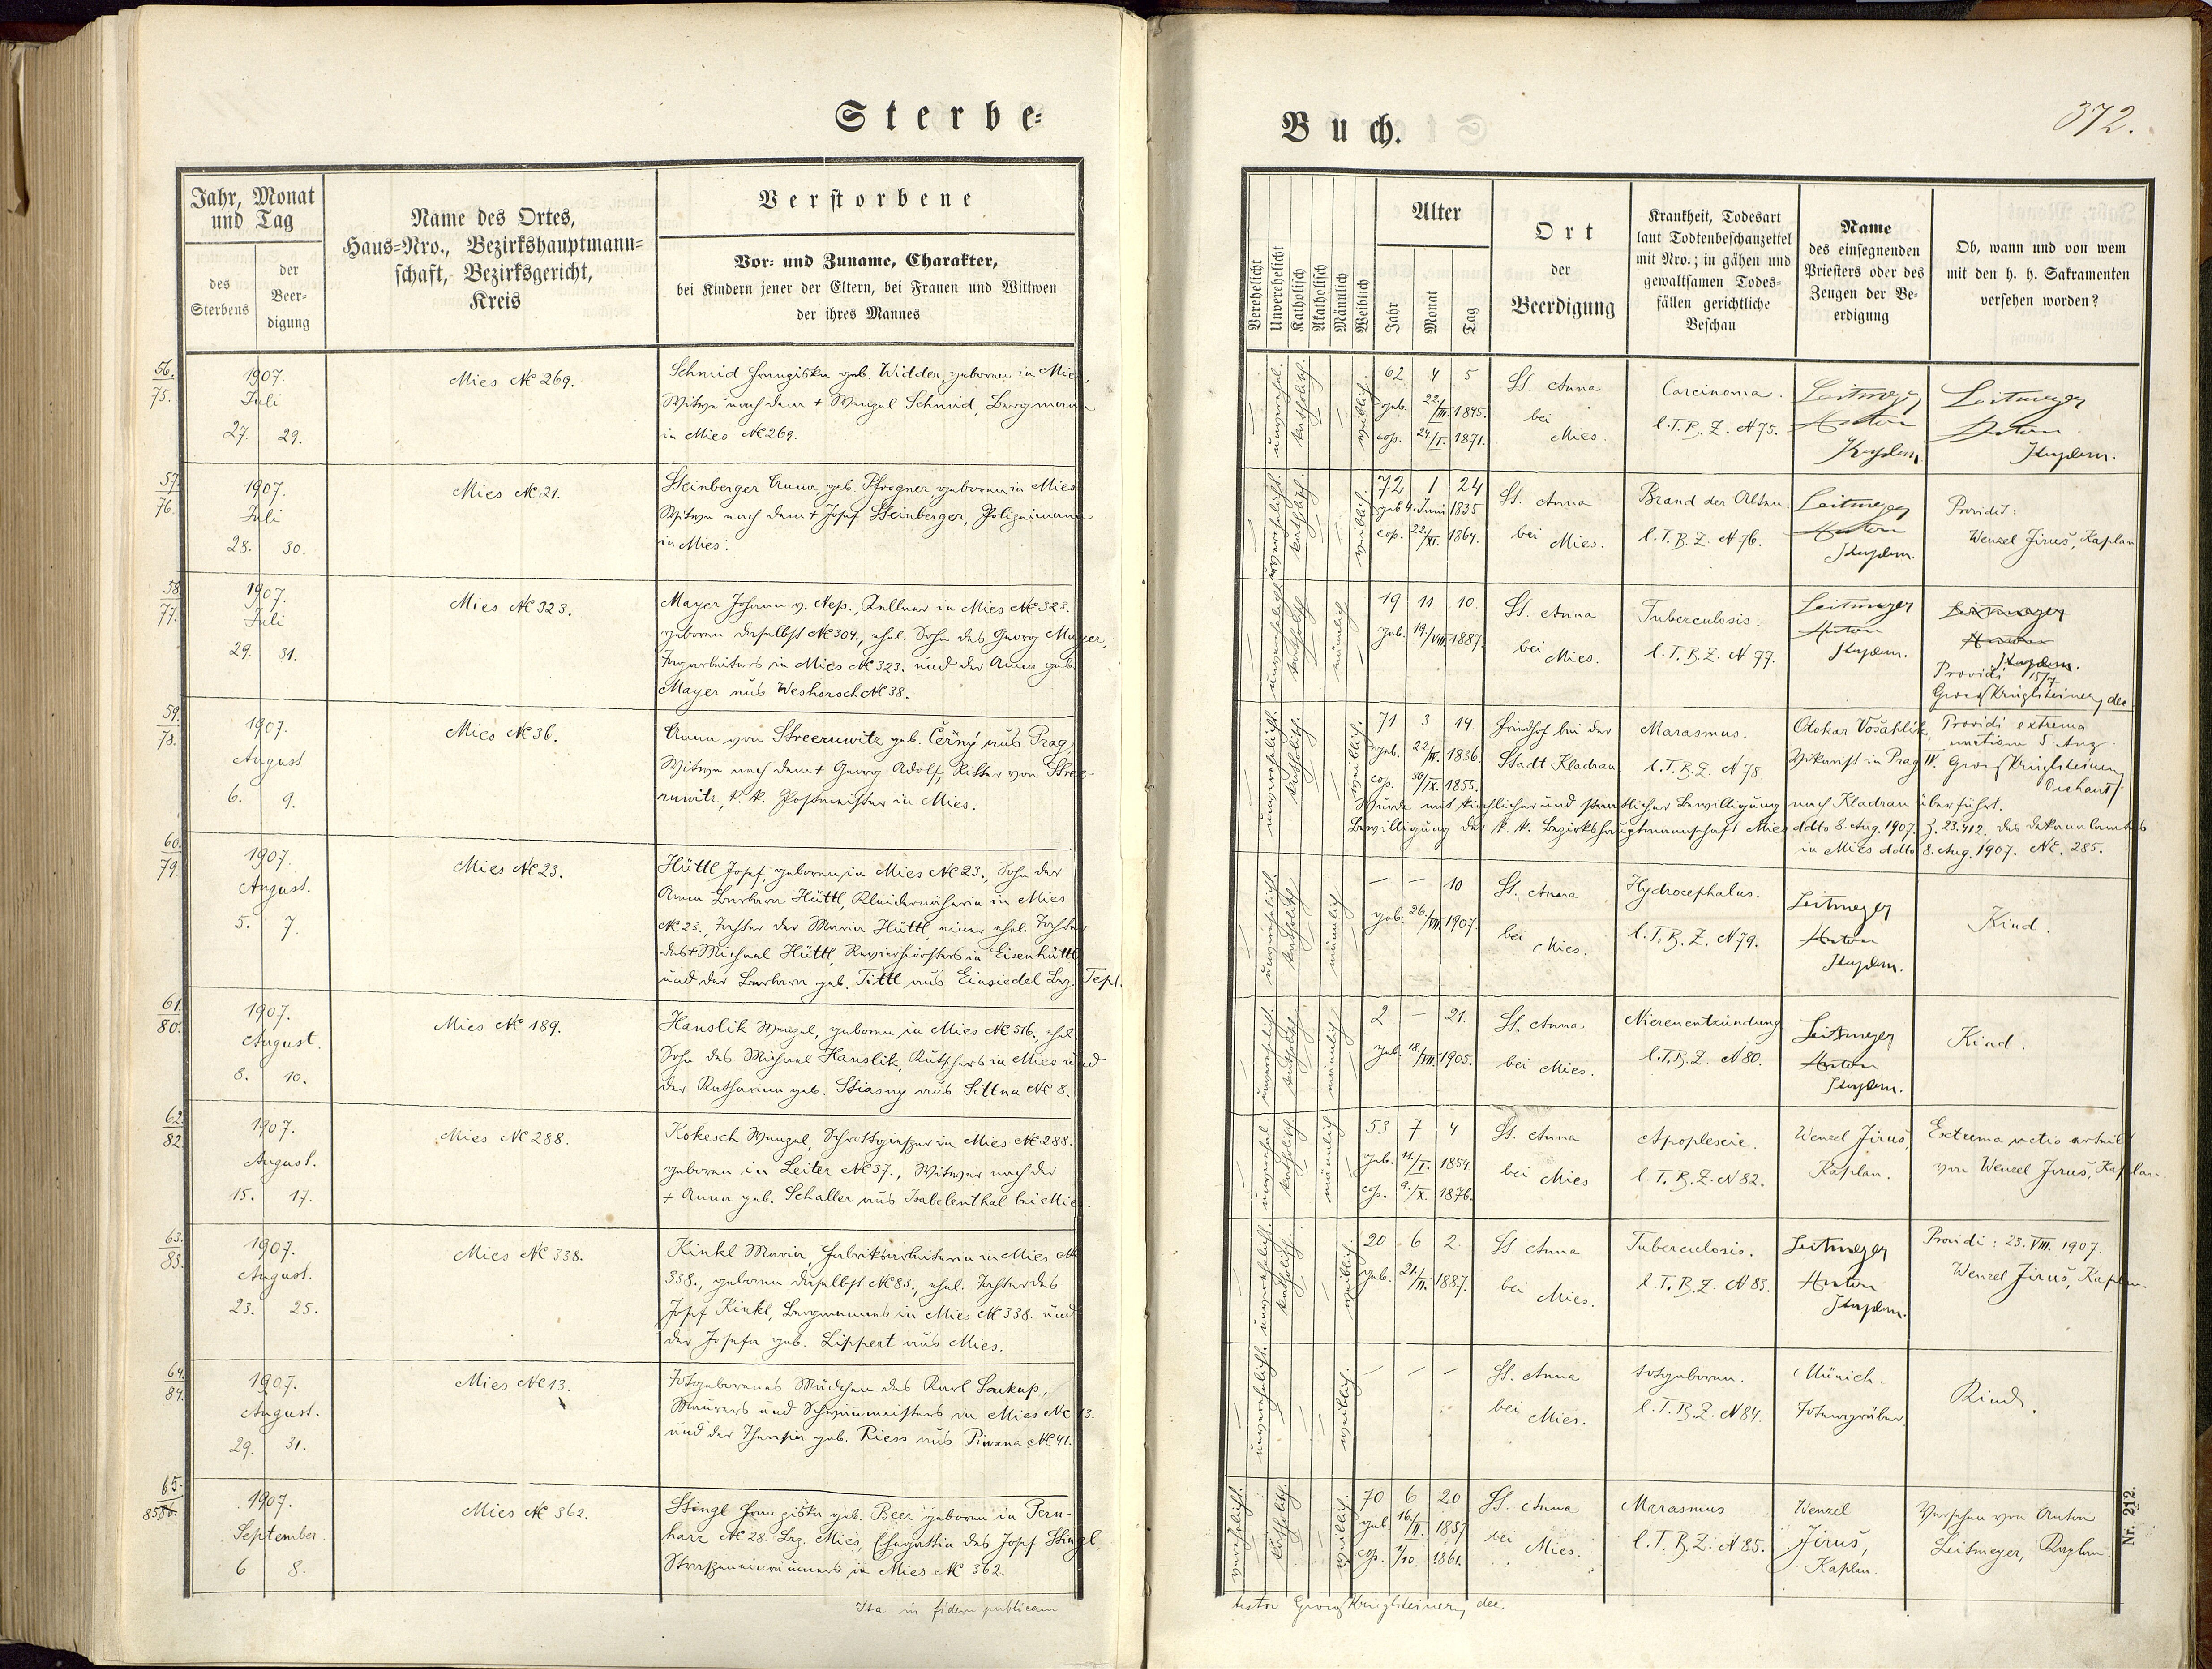 Sterbe=
Jahr, Monat
und Tag
des
Sterbens
der
Beer=
digung
Name des Ortes,
Haus=Nro., Bezirkshauptmann=
schaft, Bezirksgericht,
Kreis
Verstorbene
Vor= und Zuname, Charakter,
bei Kindern jener der Eltern, bei Frauen und Wittwen
der ihres Mannes
56.
75.
1907.
Juli
27. 29.
Mies № 269.
Schmid Franziska geb. Widder, geboren in Mies,
Witwe nach dem + Wenzel Schmid, Bergmann
in Mies № 269.
57.
76.
1907.
Juli
28. 30.
Mies № 21.
Steinberger Anna, geb. Pfrogner geboren in Mies
Witwe nach dem + Josef Steinberger, Polizeimann
in Mies.
58.
77.
1907.
Juli
29. 31.
Mies № 323.
Mayer Johann v. Nep., Kellner in Mies № 323.
geboren daselbst № 304., ehel. Sohn des Georg Mayer,
Tagarbeiters in Mies № 323. und der Anna geb.
Mayer aus Weshorsch № 38.
59.
78.
1907.
August
6. 9.
Mies № 36.
Anna von Streeruwitz geb. Černý aus Prag,
Witwe nach dem + Georg Adolf, Ritter von Stree-
ruwitz, k. k. Postmeister in Mies.
60.
79.
1907.
August.
5. 7.
Mies № 23.
Hüttl Josef, geboren in Mies № 23., Sohn der
Anna Barbara Hüttl, Kleidernäherin in Mies
№ 23., Tochter der Maria Hüttl, einer ehel. Tochter
des + Michael Hüttl, Revierförsters in Eisenhüttl
und der Barbara geb. Tittl aus Einsiedel Bez. Tepl.
61.
80.
1907.
August.
8. 10.
Mies № 189.
Hanslik Wenzel, geboren in Mies № 516., ehel.
Sohn des Michael Hanslik, Kutschers in Mies und
der Katharina geb. Stiasny aus Sittna № 8.
62.
82
1907.
August.
15. 17.
Mies № 288.
Kokesch Wenzel, Schrottgießer in Mies № 288.
geboren in Leiter № 37., Witwer nach der
+ Anna geb. Schaller aus Isabelenthal bei Mies.
63.
83.
1907.
August.
23. 25.
Mies № 338.
Kinkl Maria, Fabriksarbeiterin in Mies №
338., geboren daselbst № 83., ehel. Tochter des
Josef Kinkl, Bergmannes in Mies № 338. und
der Josefa geb. Lippert aus Mies.
64.
84.
1907.
August.
29. 31.
Mies № 13.
Totgeborenes Mädchen des Karl Soukup,
Maurers und Schwimmeisters in Mies № 13.
und der Theresia geb. Riess aus Piwana № 41.
65.
85
1907.
September
6 8.
Mies № 362.
Stingl Franziska geb. Beer geboren in Pern-
harz № 28. Bez. Mies, Ehegattin des Josef Stingl
Straßeneinräumers in Mies № 362.
Ita in fidem publicam
Buch.
372.
Verehelicht
Unverehelicht
Katholisch
Akatholisch
Männlich
Weiblich
Alter
Jahr
Monat
Tag
Ort
der
Beerdigung
Krankheit, Todesart
laut Todtenbeschauzettel
mit Nro.; in gähen und
gewaltsamen Todes=
fällen gerichtliche
Beschau
Name
des einsegnenden
Priesters oder des
Zeugen der Be=
erdigung
Ob, wann und von wem
mit den h. h. Sakramenten
versehen worden?
unverehel. katholisch. weiblich.
62 4 5
geb. 22./III. 1845.
cop. 24./I. 1871.
St. Anna
bei
Mies.
Carcinoma.
l. T. B. Z. № 75.
Leitmeyer
Anton
Kaplan.
Leitmeyer
Anton
Kaplan.
unverehelicht. kathol. weiblich.
72 1 24
geb. 4. Juni 1835
cop. 23./XI. 1864.
St. Anna
bei Mies.
Brand der Alten.
l. T. B. Z. № 76.
Leitmeyer
Anton
Kaplan.
Providit:
Wenzel Jiruš, Kaplan
unverehelicht katholisch männlich
19 11 10.
geb. 19./VIII. 1887.
St. Anna
bei Mies.
Tuberculosis.
l. T. B. Z. № 77.
Leitmeyer
Anton
Kaplan.
Leitmeyer
Anton
Kaplan.
Providi 15/7
Georg Krieglsteiner, dec.
unverehelicht. katholisch. weiblich.
71 3 14.
geb. 22/IV. 1836.
cop. 30/IX. 1855.
Friedhof bei der
Stadt Kladrau
Marasmus.
l. T. B. Z. № 78
Otokar Vošahlík,
Vikarist in Prag IV.
Providi extrema
unctione 5. Aug.
Georg Krieglsteiner,
Dechant
Wurde mit kirchlicher und staatlicher Bewilligung nach Kladrau überführt.
Bewilligung der k. k. Bezirkshauptmannschaft Mies ddto 8. Aug. 1907. Z. 23.412. des Dekanalamtes
in Mies ddto 8. Aug. 1907. №. 285.
unverehelich. katholisch männlich
— — 10
geb. 26./VII. 1907.
St. Anna
bei Mies.
Hydrocephalus.
l. T. B. Z. № 79.
Leitmeyer
Anton
Kaplan.
Kind.
unverehelicht. katholisch. männlich
2 — 21.
geb. 18./VII. 1905.
St. Anna.
bei Mies.
Nierenentzündung
l. T. B. Z. № 80.
Leitmeyer
Anton
Kaplan.
Kind.
unverehel. katholisch männlich
53 7 4
geb. 11./I. 1854.
cop. 9./X. 1876.
St. Anna
bei Mies
Apoplexie.
l. T. B. Z. № 82.
Wenzel Jiruš,
Kaplan.
Extrema unctio erteilt
von Wenzel Jiruš, Kaplan.
unverehelicht. katholisch. weiblich.
20 6 2.
geb. 21./II. 1887.
St. Anna
bei Mies.
Tuberculosis.
l. T. B. Z. № 83.
Leitmeyer
Anton
Kaplan.
Providi: 23. VIII. 1907.
Wenzel Jiruš, Kaplan.
unverehelicht. weiblich.
— — —
St. Anna
bei Mies.
totgeboren.
l. T. B. Z. № 84.
Münich.
Totengräber.
Kind.
verehelicht. katholisch. weiblich.
70 6 20
geb. 16./II. 1837
cop. 1/10. 1861.
St. Anna
bei Mies.
Marasmus
l. T. B. Z. № 85.
Wenzel
Jiruš,
Kaplan.
Versehen von Anton
Leitmeyer, Kaplan.
testor Georg Krieglsteiner, dec.
Nr. 212.